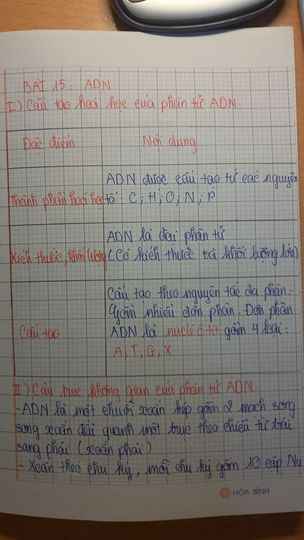 BÀI 15 ADN
I) Cấu tạo hoá học của phân tử ADN.
Đặc điểm Nội dung
Thành phần hoá học
ADN được cấu tạo từ các nguyên
tố: C, H, O, N, P
Kích thước, khối lượng
ADN là đại phân tử
(Có kích thước và khối lượng lớn)
Cấu tạo
Cấu tạo theo nguyên tắc đa phân.
Gồm nhiều đơn phân. Đơn phân
ADN là nuclêôtit gồm 4 loại:
A, T, G, X
II) Cấu trúc không gian của phân tử ADN
- ADN là một chuỗi xoắn kép gồm 2 mạch song
song xoắn đều quanh một trục theo chiều từ trái
sang phải (xoắn phải)
- Xoắn theo chu kỳ, mỗi chu kỳ gồm 10 cặp Nu
HÒA BÌNH